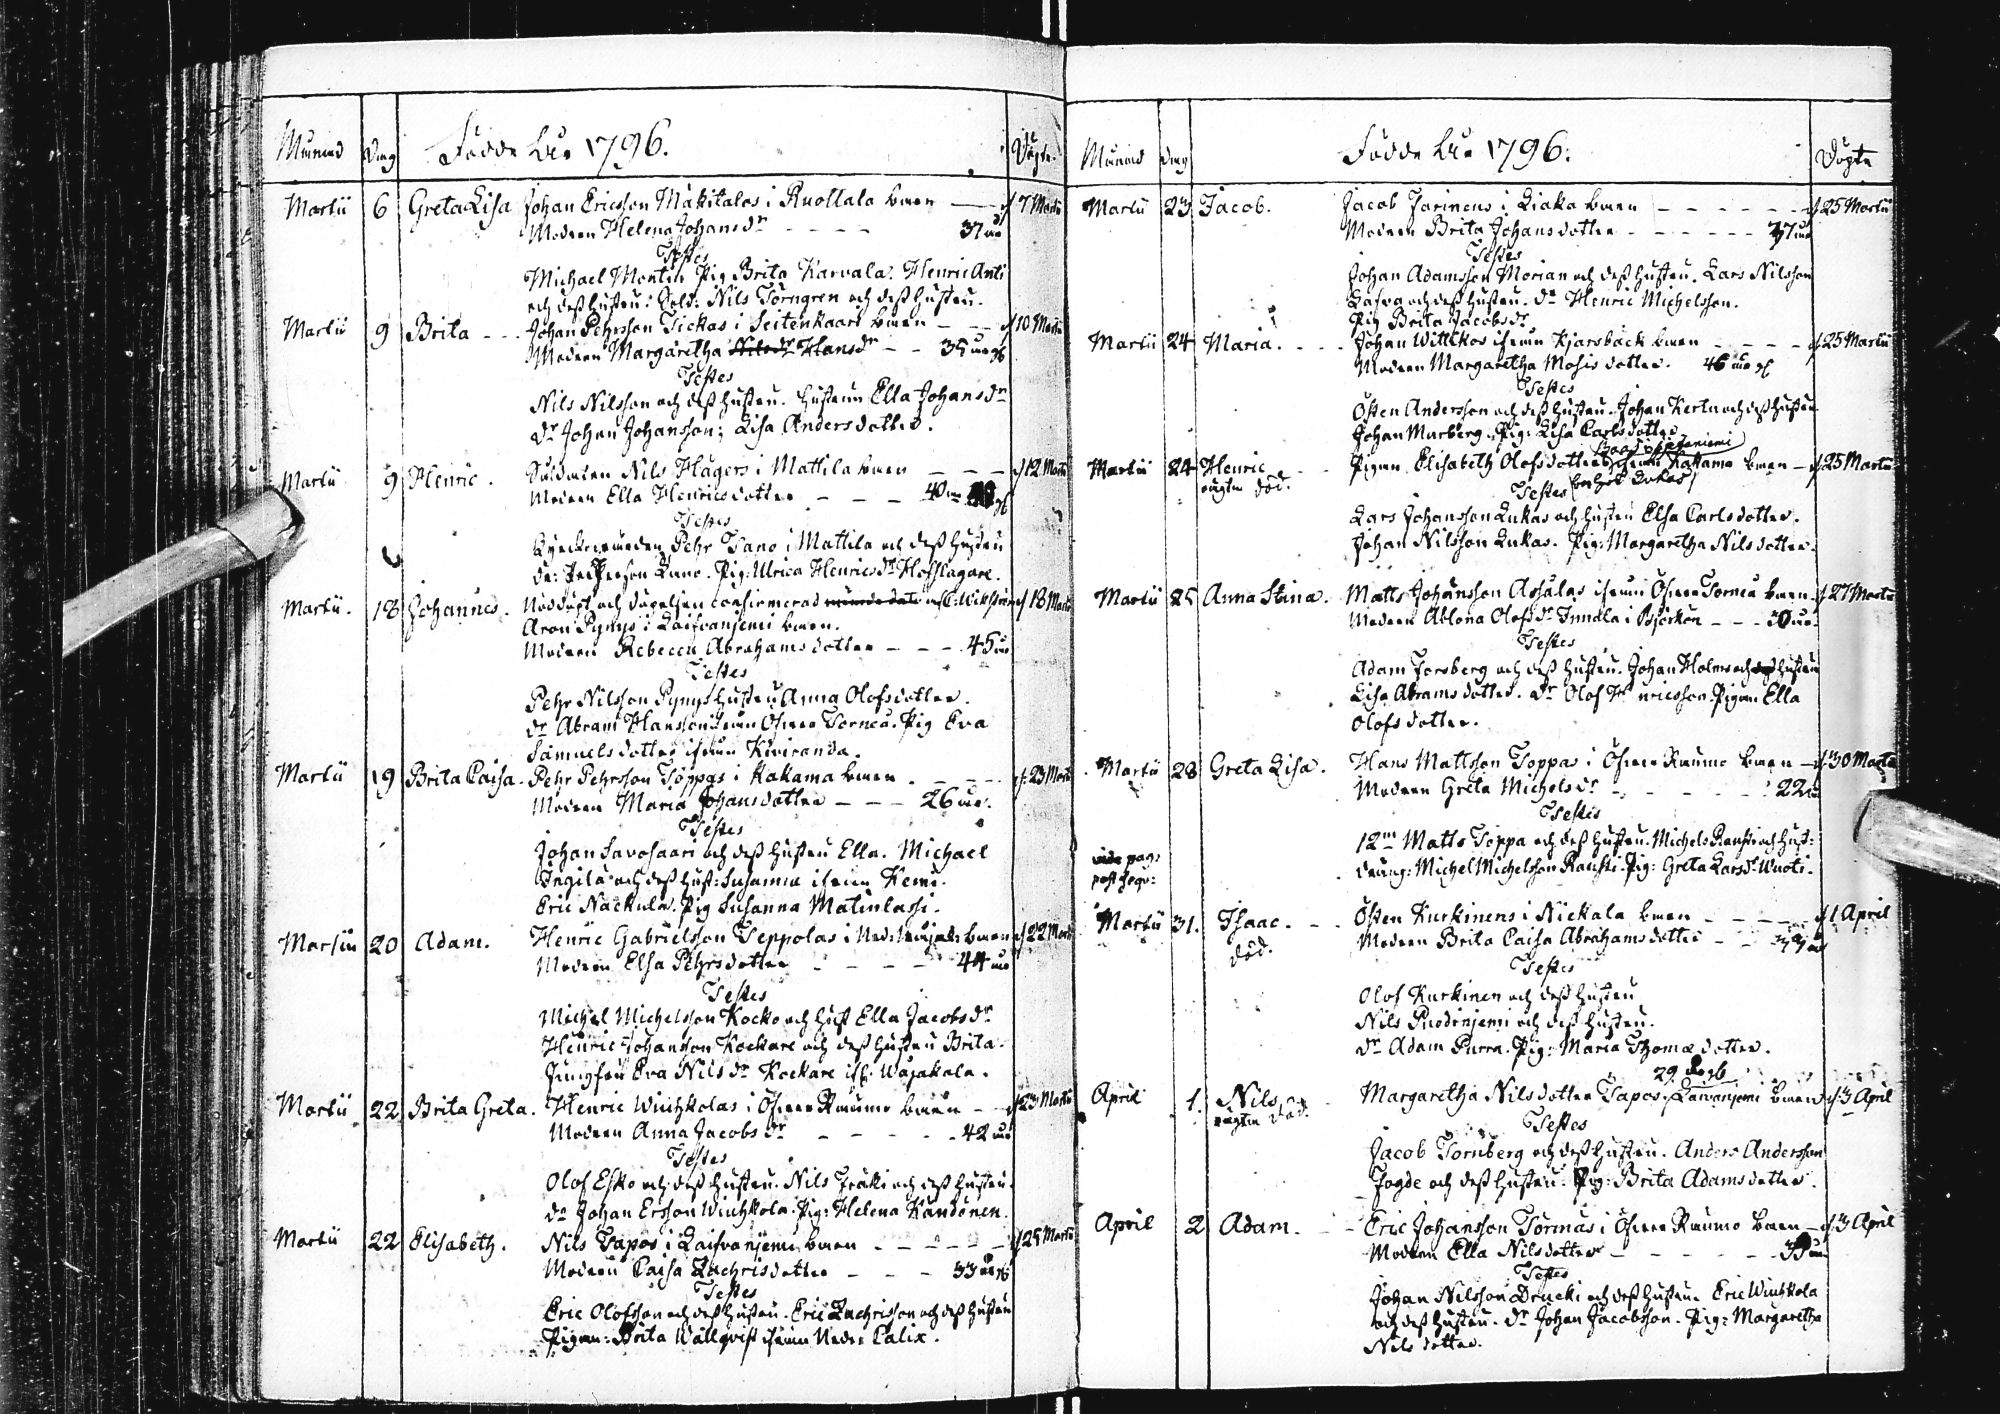 Månad Dag Födde åhr 1796. Döpte
Martii 6 Greta Lisa Johan Ericsson Mäkitalos i Ruottala barn 7 Martii
Modren Helena Johansdr 37 åår
Testes
Michael Montin Pig Brita Karvala. Henric Anti
och dess hustru. Sold: Nils Törngren och dess hustru.
Martii 9 Brita Johan Pehrsson Tickas i Seitenkaari barn 10 Martii
Modren Margaretha Hansdr 35 åår
Testes
Nils Nilsson och dess hustru. hustrun Ella Johansdr
dr Johan Johansson; Lisa Andersdotter.
Martii 9 Henric. Soldaten Nils Hägers i Mattila barn 12 Martii
Modren Ella Henricsdotter 40 åår
Testes
Pehr Tano i Mattila och dess hustru
Pig: Ulrica Henricsdr Hofslagare.
Martii. 18 Johannes. Nöddöpt och döpelsen confirmerad 18 Martii
Aron Pynys i Laifvanjemi barn.
Modren Rebecca Abrahamsdotter 45 åår
Testes
Pehr Nilsson Pynys hustru Anna Olofsdotter.
dr Abram Hansson ifrån Öfver Torneå. Pig Eva
Samuelsdotter ifrån Kiviranda.
Martii 19 Brita Caisa. Pehr Pehrsson Toppas i Kakama barn. 23 Martii
Modren Maria Johansdotter 26 åår.
Testes
Johan Savosaari och dess hustru Ella. Michael
Ingilä och dess hust: Susanna ifrån Kemi.
Eric Nackula. Pig Susanna Matinlassi.
Martii 20 Adam. Henric Gabrielsson Seppolas i barn 22 Martii
Modren Elsa Pehrsdotter 44 åår
Testes
Michel Michelsson Kocko och hust Ella Jacobsdr
Henric Johansson Kockare och dess hustru Brita.
Jungfru Eva Nilsdr Kockare Wojakala.
Martii 22 Brita Greta. Henric Wiuhkolas i Öfver Raumo barn 23 Martii
Modren Anna Jacobsdr 42 åår
Testes
Olof Esko och dess hustru. Nils Fräki och dess hustru.
dr Johan Ersson Wiuhkola. Pig: Helena Kandonen.
Martii 22 Elisabeth. Nils Tapos i Laifvanjemi barn 25 Martii
Modren Caisa Zachrisdotter 33 åår
Testes
Eric Olofsson och dess hustru. Eric Zachrisson och dess hustru
Pigan: Brita Wällqvist ifrån Neder Calix.
Månad Dag Födde åhr 1796. Döpte
Martii 23 Jacob. Jacob Jarinens i Liaka barn 25 Martii
Modren Brita Johansdotter 37 åår
Testes
Johan Adamsson Morian och dess hustru. Lars Nilsson
och dess hustru. dr Henric Michelsson.
Pig Brita Jacobsdr
Martii 24 Maria. Johan Wittikos ifrån Kjärsbäck barn 25 Martii
Modren Margaretha Mosisdotter. 46 åår
Testes
Östen Andersson och dess hustru. Johan Kertu och dess hustru
Johan Murberg. Pig: Lisa Carlsdotter
Martii 24 Henric Pigan Elisabeth Olofsdotters ifrån Kakama barn 25 Martii
oägta död. Testes
Lars Johansson Lukas och hustru Elsa Carlsdotter.
Johan Nilsson Lukas. Pig: Margaretha Nilsdotter.
Martii 25 Anna Stina. Matts Johansson Assalas ifrån Öfver Torneå barn 27 Martii
Modren Ablona Olofsdr i Björkön
Testes
Adam Forsberg och dess hustru. Johan Holms och hustru
Lisa Abramsdotter. dr Olof Pigan Ella
Olofsdotter.
Martii 28 Greta Lisa. Hans Mattsson Toppas i Öfver Raumo barn 30 Martii
Modren Greta Michelsdr 22 åår
Testes
12mn Matts Toppa och dess hustru. Michels Rauski och hust:
dräng: Michel Michelsson Rauski. Pig: Greta Larsdr Wuoti.
vide pag:
post sequ:
Martii 31. Isaac. Östen Kurkinens i Nickala barn 1 April
död. Modren Brita Caisa Abrahamsdotter
Testes
Olof Kurkinen och dess hustru
Nils Puodinjemi och dess hustru.
dr Adam Purra. Pig: Maria Thomædotter.
29 år
April 1. Nils Margaretha Nilsdotter Tapos Laivanjemi barn 3 April
oägta död. Testes
Jacob Tornberg och dess hustru. Anders Andersson
Fogde och dess hustru. Pig: Brita Adamsdotter.
April 2 Adam. Eric Johansson Törmäs i Öfver Raumo barn 3 April
Modren Ella Nilsdotter
Testes
Johan Nilsson Drucki och dess hustru. Eric Wiuhkola
och dess hustru. dr Johan Jacobsson. Pig: Margaretha
Nilsdotter.